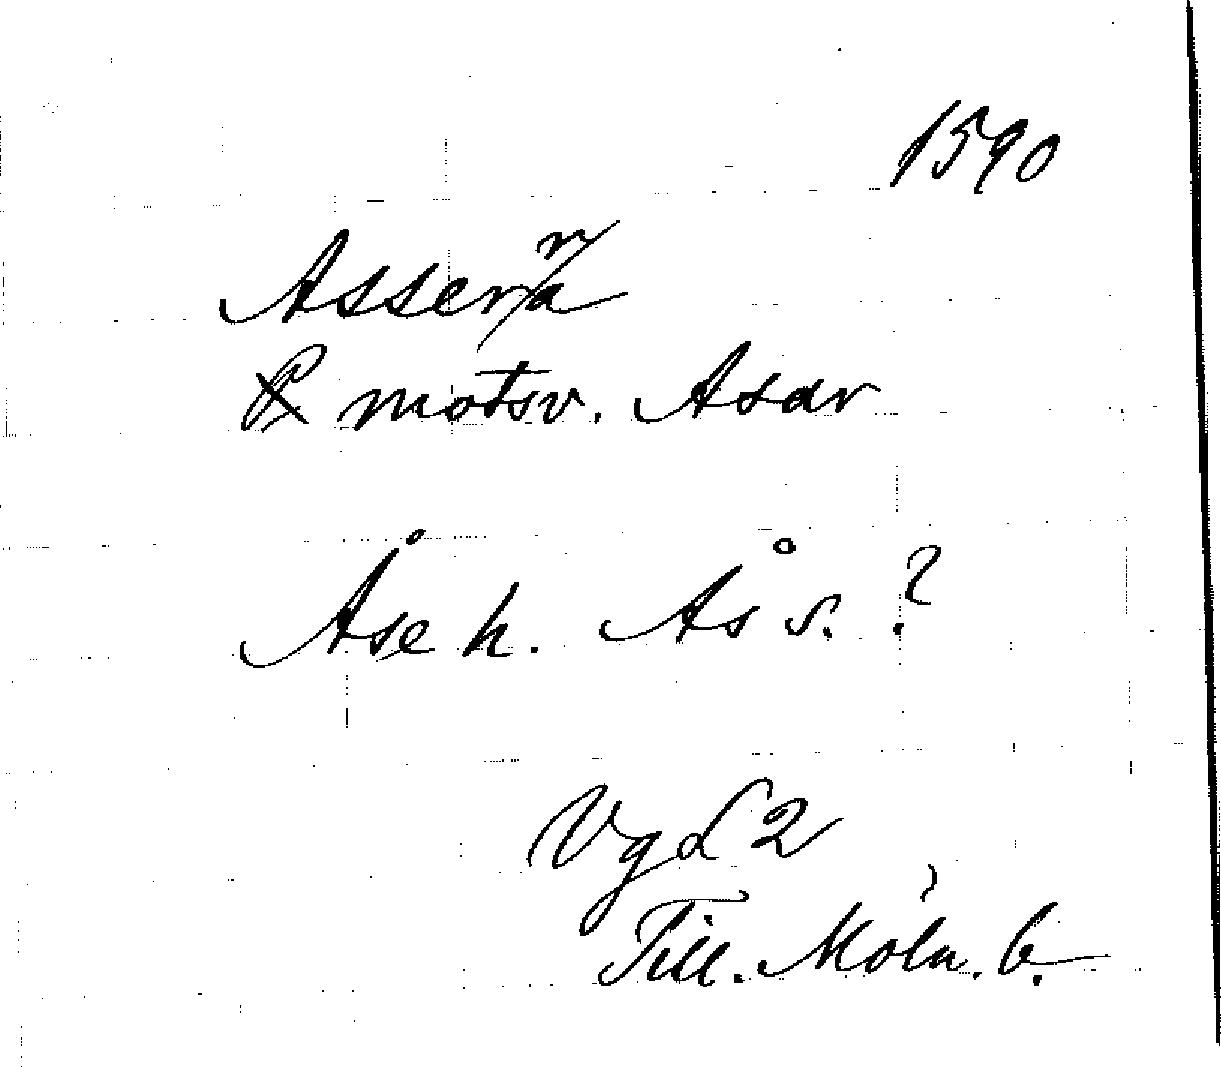 1590
Asserna
P motsv. Asar
Åse h. Ås s. ?
Vgd 2
Till. Möln. b.